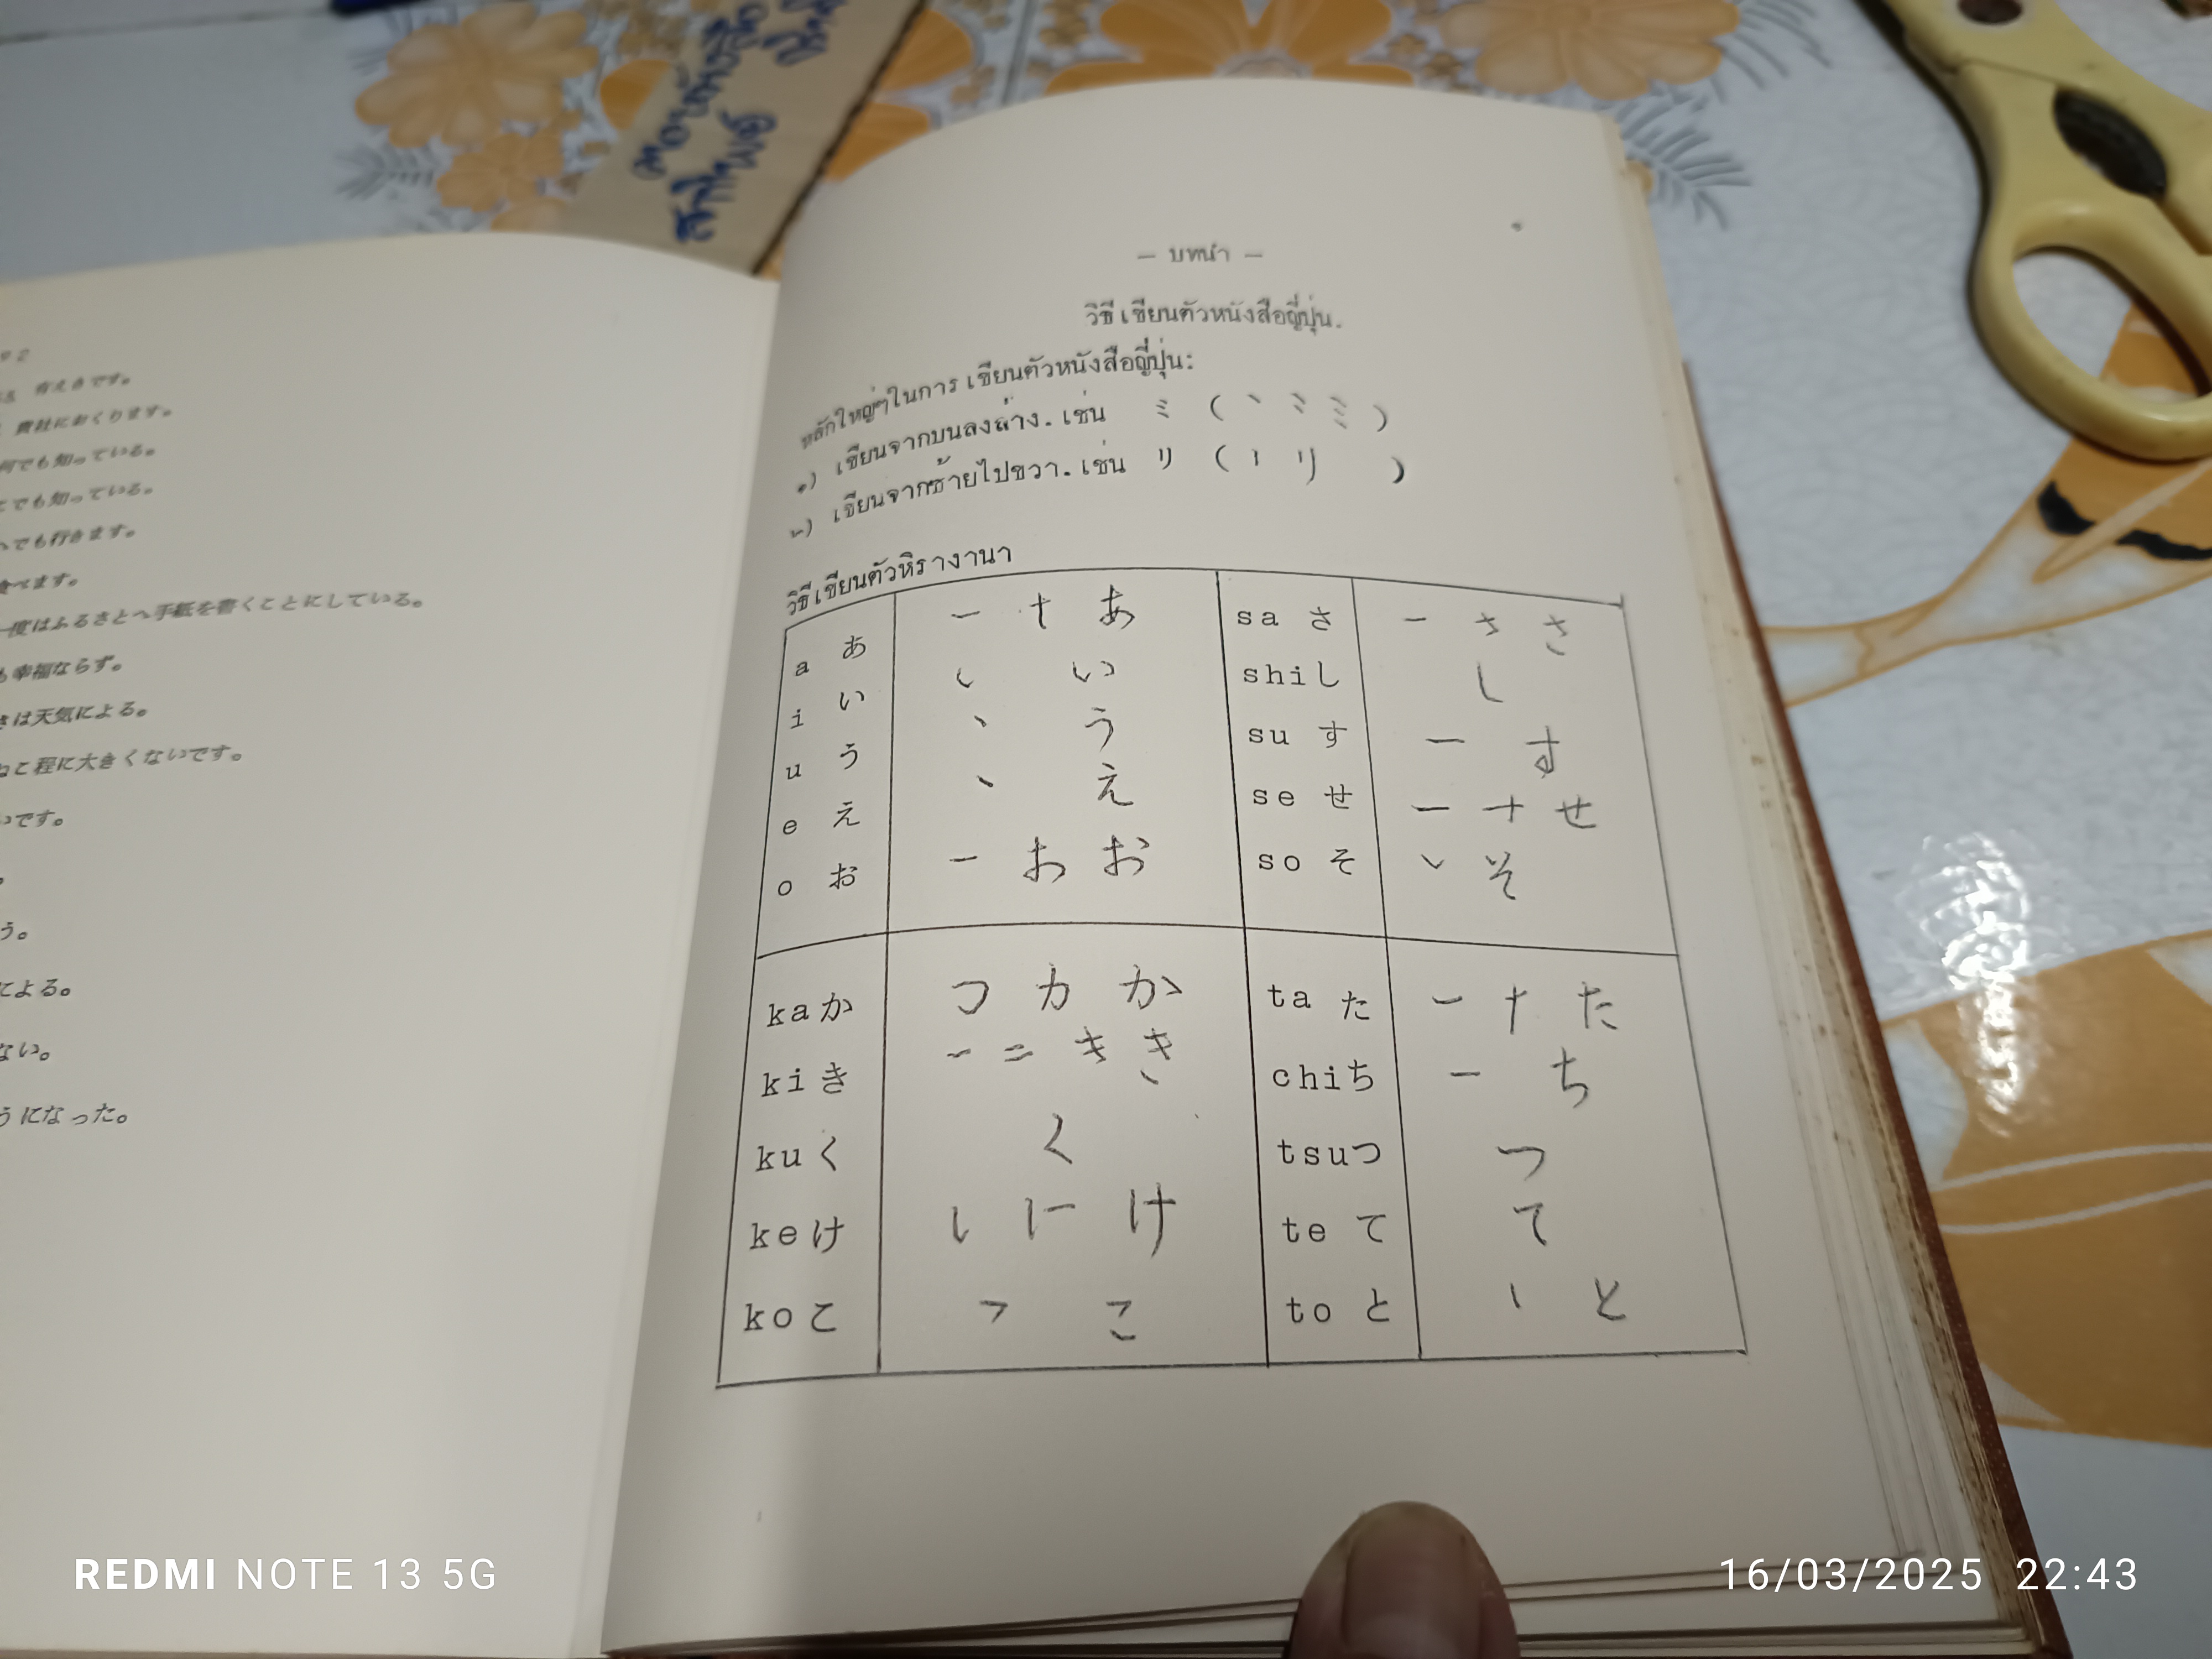 有えきです。
貴社におくります。
何でも知っている。
でも知っている。
でも行きます。
食べます。
一度はふるさとへ手紙を書くことにしている。
も幸福ならず。
きは天気による。
ねこ程に大きくないです。
いです。
う。
による。
ない。
うになった。
— บทนำ —
วิธีเขียนตัวหนังสือญี่ปุ่น.
หลักใหญ่ๆในการเขียนตัวหนังสือญี่ปุ่น:
๑) เขียนจากบนลงล่าง. เช่น ミ ( ` ミ ミ )
๒) เขียนจากซ้ายไปขวา. เช่น リ ( ı リ )
วิธีเขียนตัวหิรางานา
a あ 一 十 あ
i い い
u う 丶 う
e え 丶 え
o お 一 お お
sa さ 一 さ さ
shi し し
su す 一 す
se せ 一 十 せ
so そ ヽ そ
ka か つ カ か
ki き 一 二 キ き
ku く く
ke け し に け
ko こ つ こ
ta た 一 ナ た
chi ち 一 ち
tsu つ つ
te て て
to と 丶 と
มอบหนังสือ
สภาไพศ์
REDMI NOTE 13 5G
16/03/2025 22:43